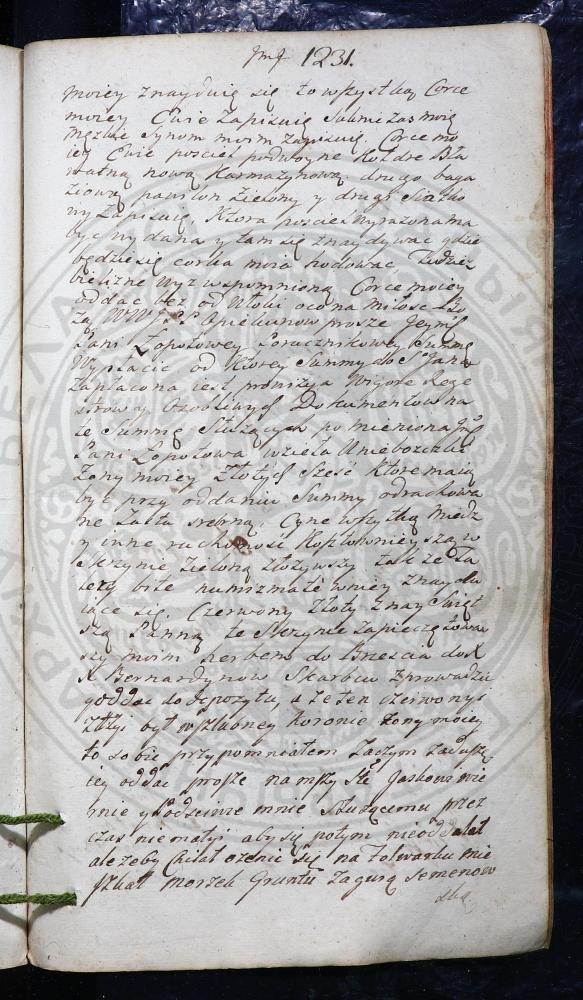 1231.
moiey znayduię się to wszystką Corce
moiey Ewie zapisuię Summę zas moię
męzkie Synom moim zapisuię. Corce mo
iey Ewie posciel podwoyne Kołdre Bła
watną nową Karmazynową drugo baga
ziową pawilon zielony y drugi
ny zapisuię Ktora posciel wyrazona ma
byc wydana y tam się znaydywac gdzie
będzie się corka moia hodowac, Tudziesz
bielizne wyz wspomnioną Corce moiey
oddac bez od włoki ocona miłosc Bo
zą WWJP Opiekunow prosze Jeymsc
Pani Łopotowey Porucznikowey Summę
Wypłacic od Ktorey Summy do S Jana
zapłacona iest prowizya Wigore Reje
strow y Osobliwych Dokumentow na
te Summę Słuzących pomieniona Jmsc
Pani Łopotowa wzieła u nieboszczki
zony moiey złotych szesc Ktore maią
byc przy oddaniu Summy odrachowa
ne zasta srebrną, Cynę wszytką Miedz
y inne ruchomosc Kosztownieyszą w
skrzynie zieloną złozywszy takze ta
lery bite numizmate w niey znaydu
iące się Czerwony złoty z nays Swięt
szą Panną te skrzynie zapieczętowa
szy moim herbem do Brzescia do
X Bernardynow Skarbcu zprowadzic
y oddac do depozytu, a ze ten czerwony
złty był w szlubney koronie zony moiey
to sobie przypomniałem zaczym za duszę
iey oddac prosze na mszy Ste Jaskowi wie
rnie y Podsciwie mnie słuzącemu przez
czas niemały aby się potym nie oddalał
ale zeby chciał ozenic się na Folwarku mie
szkał morzek Gruntu za gurą Semenow
ską